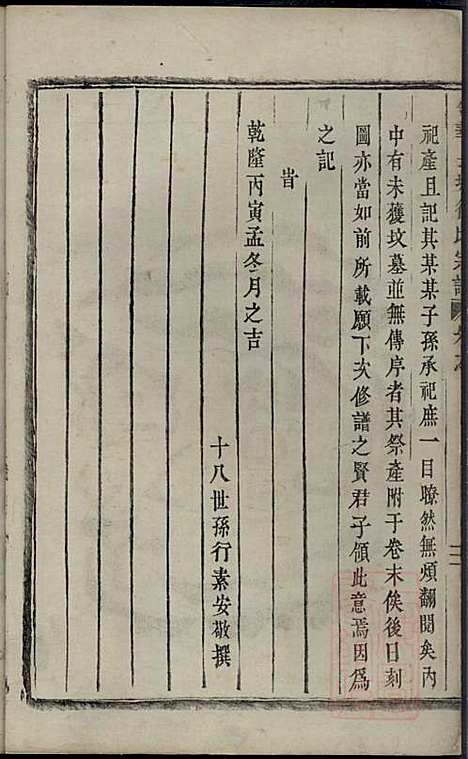 祀產且記其某某子孫承祀庶一目瞭然無煩翻閱矣內
中有未獲坟墓並無傳序者其祭產附于卷末俟後日刻
圖亦當如前所載願下次修譜之賢君子領此意焉因爲
之記
旹
乾隆丙寅孟冬月之吉
十八世孫行素安敬撰